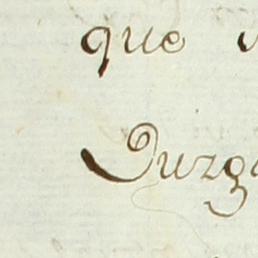 que
Juzga